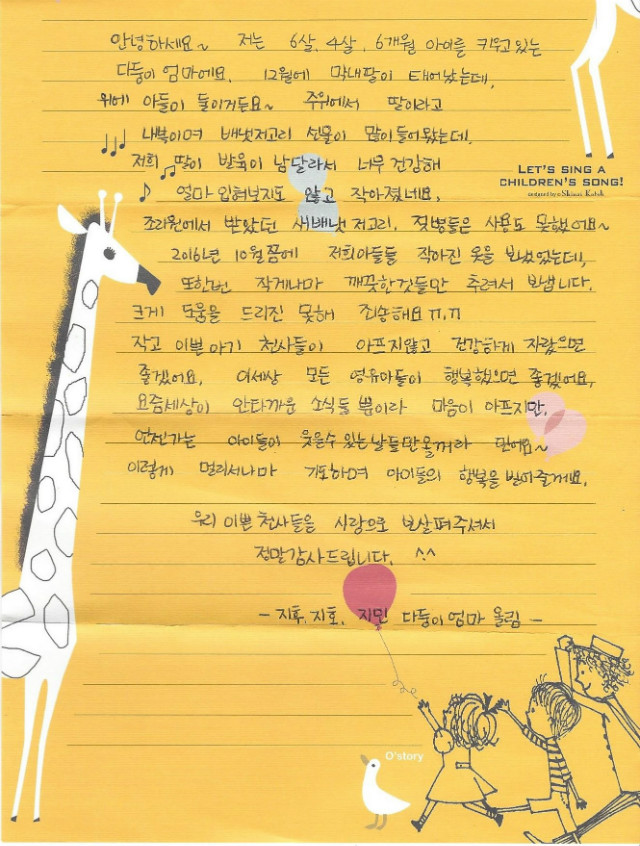 안녕하세요~ 저는 6살, 4살, 6개월 아이를 키우고있는
다둥이 엄마에요. 12월에 막내딸이 태어났는데,
위에 아들이 둘이거든요~ 주위에서 딸이라고
내복이며 배냇저고리 선물이 많이들어왔는데.
저희 딸이 발육이 남달라서 너무 건강해
얼마 입혀보지도 않고 작아졌네요.
조리원에서 받았던 새배냇저고리, 젖병들은 사용도 못했어요~
2016년 10월쯤에 저희아들들 작아진 옷을 보냈었는데,
또한번 작게나마 깨끗한것들만 추려서 보냅니다.
크게 도움을 드리진 못해 죄송해요 ㅠ.ㅠ
작고 이쁜 아기 천사들이 아프지않고 건강하게 자랐으면
좋겠어요. 이세상 모든 영유아들이 행복했으면 좋겠어요.
요즘세상이 안타까운 소식들 뿐이라 마음이 아프지만,
언젠가는 아이들이 웃을수있는날들만올꺼라 믿어요~
이렇게 멀리서나마 기도하며 아이들의 행복을 빌어줄께요.
우리 이쁜 천사들을 사랑으로 보살펴주셔서
정말감사드립니다. ^^
- 지후, 지호, 지민 다둥이 엄마 올림 -
LET'S SING A
CHILDREN'S SONG!
O'story